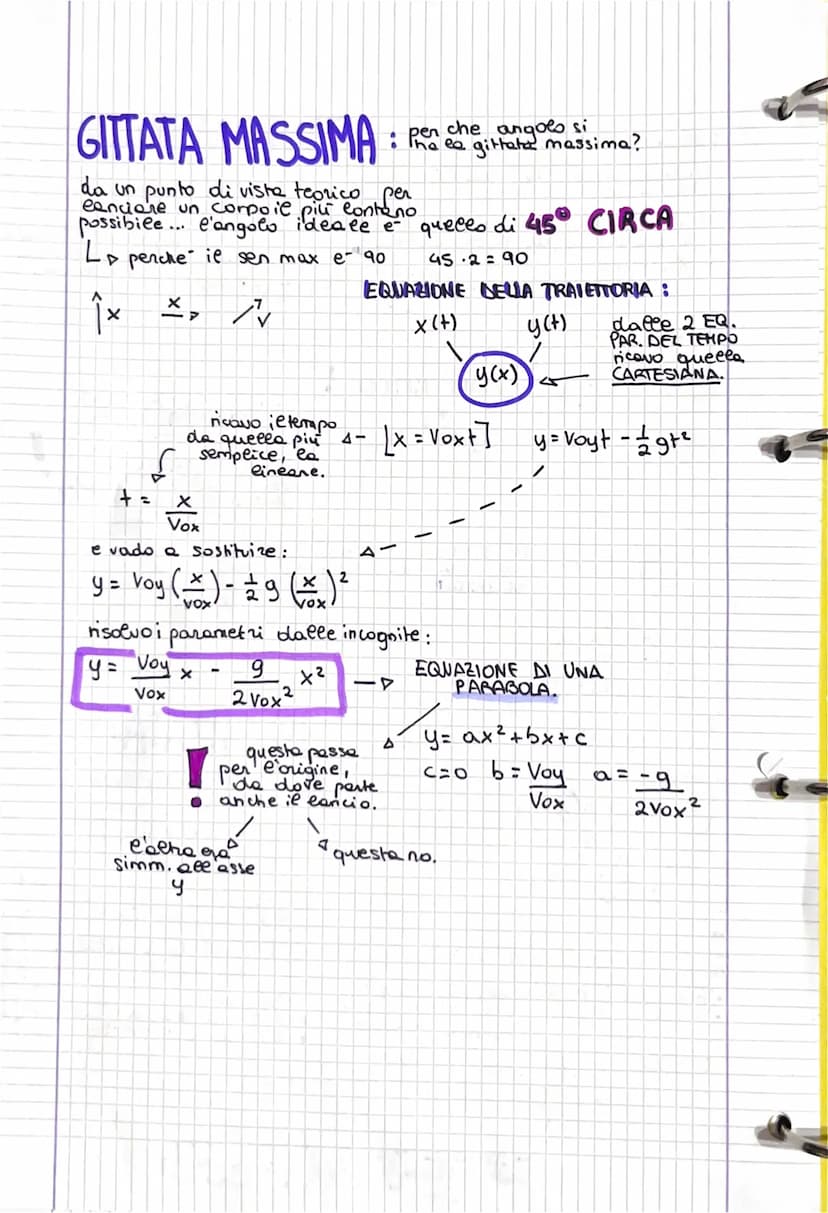 GITTATA MASSIMA : per che angolo si
ha la gittata massima?
da un punto di vista teorico per
lanciare un corpo il più lontano
possibile... l'angolo ideale e- quello di 45° CIRCA
perche- il sen max e- 90 45 · 2 = 90
EQUAZIONE DELLA TRAIETTORIA :
x x v
x(t) y(t)
y(x)
dalle 2 EQ.
PAR. DEL TEMPO
ricavo quella
CARTESIANA.
ricavo il tempo
da quella più
semplice, la
lineare.
[x = Voxt] y = Voyt - 1/2 gt²
t = x/Vox
e vado a sostituire :
y = Voy (x/Vox) - 1/2 g (x/Vox)²
risolvo i parametri dalle incognite :
y = Voy/Vox x - g/2Vox² x²
EQUAZIONE DI UNA
PARABOLA.
y = ax² + bx + c
c=0 b = Voy/Vox a = -g/2Vox²
! questa passa
per l'origine,
da dove parte
anche il lancio.
l'altra era
simm. all'asse
y
questa no.